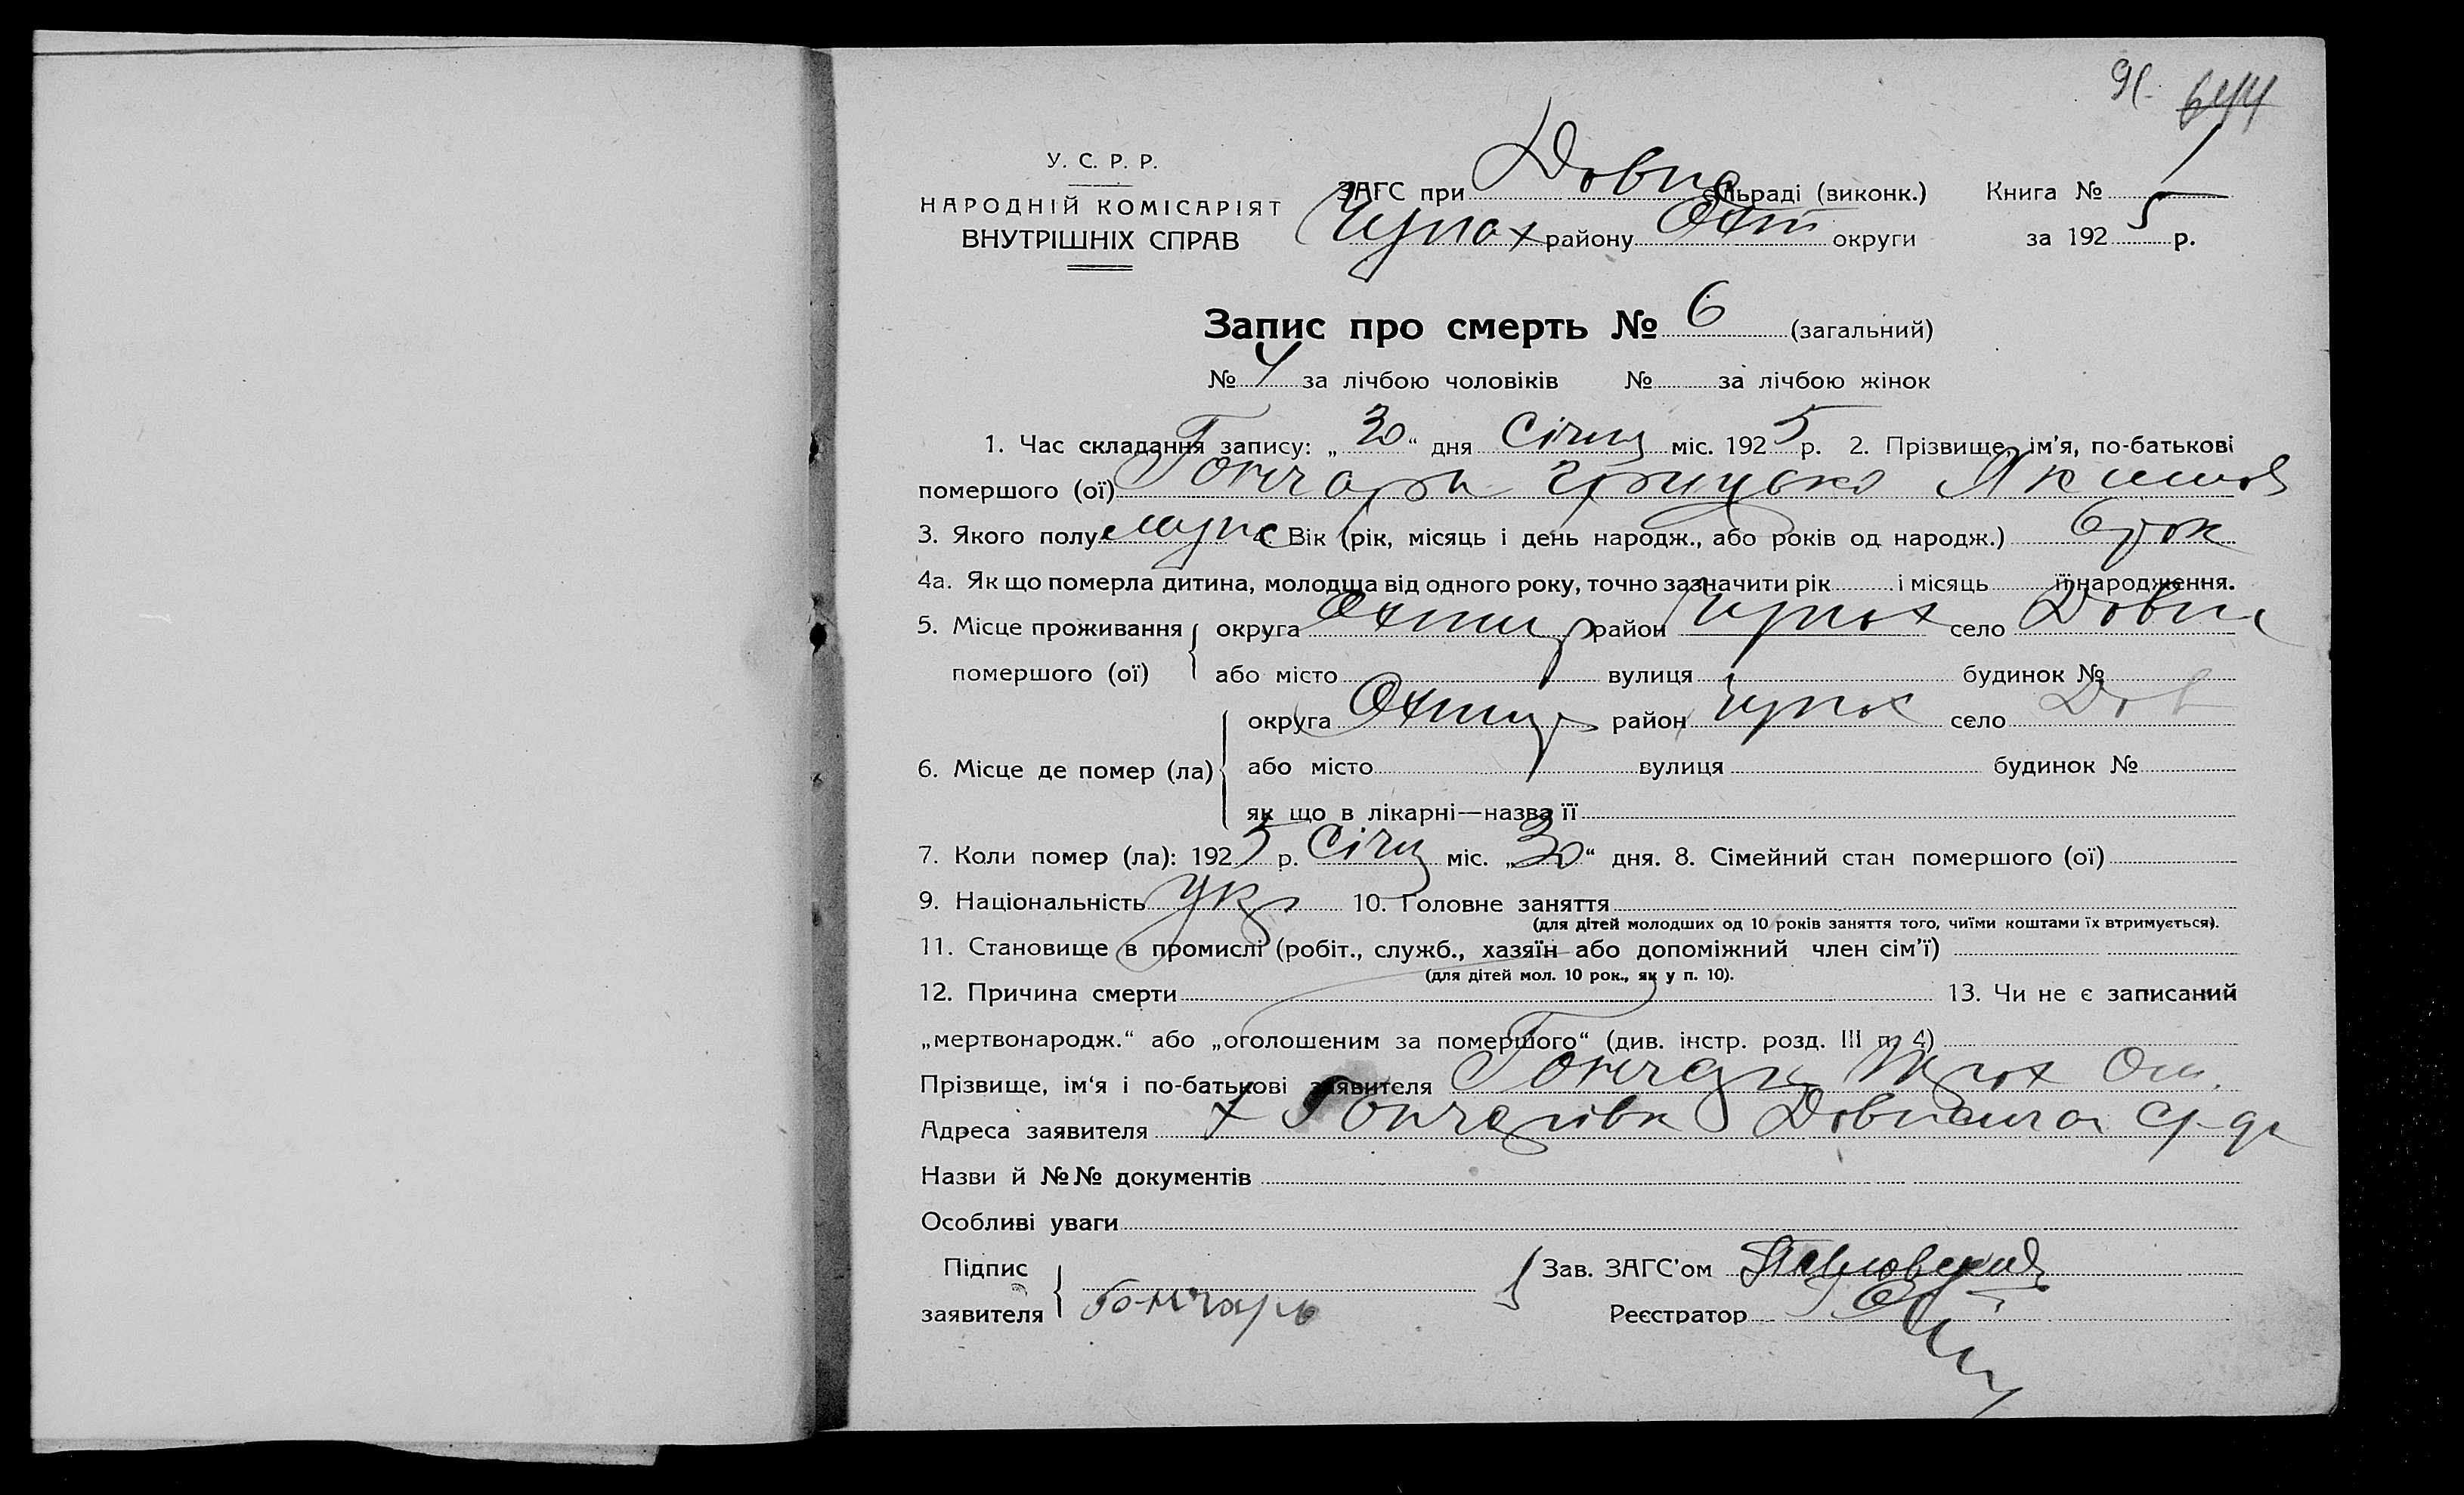 91. 644
У. С. Р. Р.
НАРОДНІЙ КОМІСАРІЯТ
ВНУТРІШНІХ СПРАВ
ЗАГС при сільраді (виконк.) Книга № 1
району Охт округи за 1925 р.
Запис про смерть № 6 (загальний)
№ 4 за лічбою чоловіків № за лічбою жінок
1. Час складання запису: „30“ дня Січня міс. 1925 р. 2. Прізвище, ім’я, по-батькові
першого (ої) Гончарь Грицько Якимов
3. Якого полу муж 4. Вік (рік, місяць і день народж., або років од народж.) 6 рок
4а. Як що померла дитина, молодща від одного року, точно зазначити рік і місяць її народження.
5. Місце проживання округа Охтир район село
помершого (ої) або місто вулиця будинок №
округа Охтир район село
6. Місце де помер (ла) або місто вулиця будинок №
як що в лікарні—назва її
7. Коли помер (ла): 1925 р. Січня міс. „30“ дня. 8. Сімейний стан помершого (ої)
9. Національність Укр 10. Головне заняття
(для дітей молодших од 10 років заняття того, чиїми коштами їх втримується).
11. Становище в промислі (робіт., служб., хазяїн або допоміжний член сім’ї)
(для дітей мол. 10 рок., як у п. 10).
12. Причина смерти 13. Чи не є записаний
„мертвонародж.“ або „оголошеним за помершого“ (див. інстр. розд. III п. 4)
Прізвище, ім‘я і по-батькові заявителя Гончарь
Адреса заявителя х Гончарівк
Назви й №№ документів
Особливі уваги
Підпис Зав. ЗАГС’ом Павловский
заявителя Гончарь Реєстратор